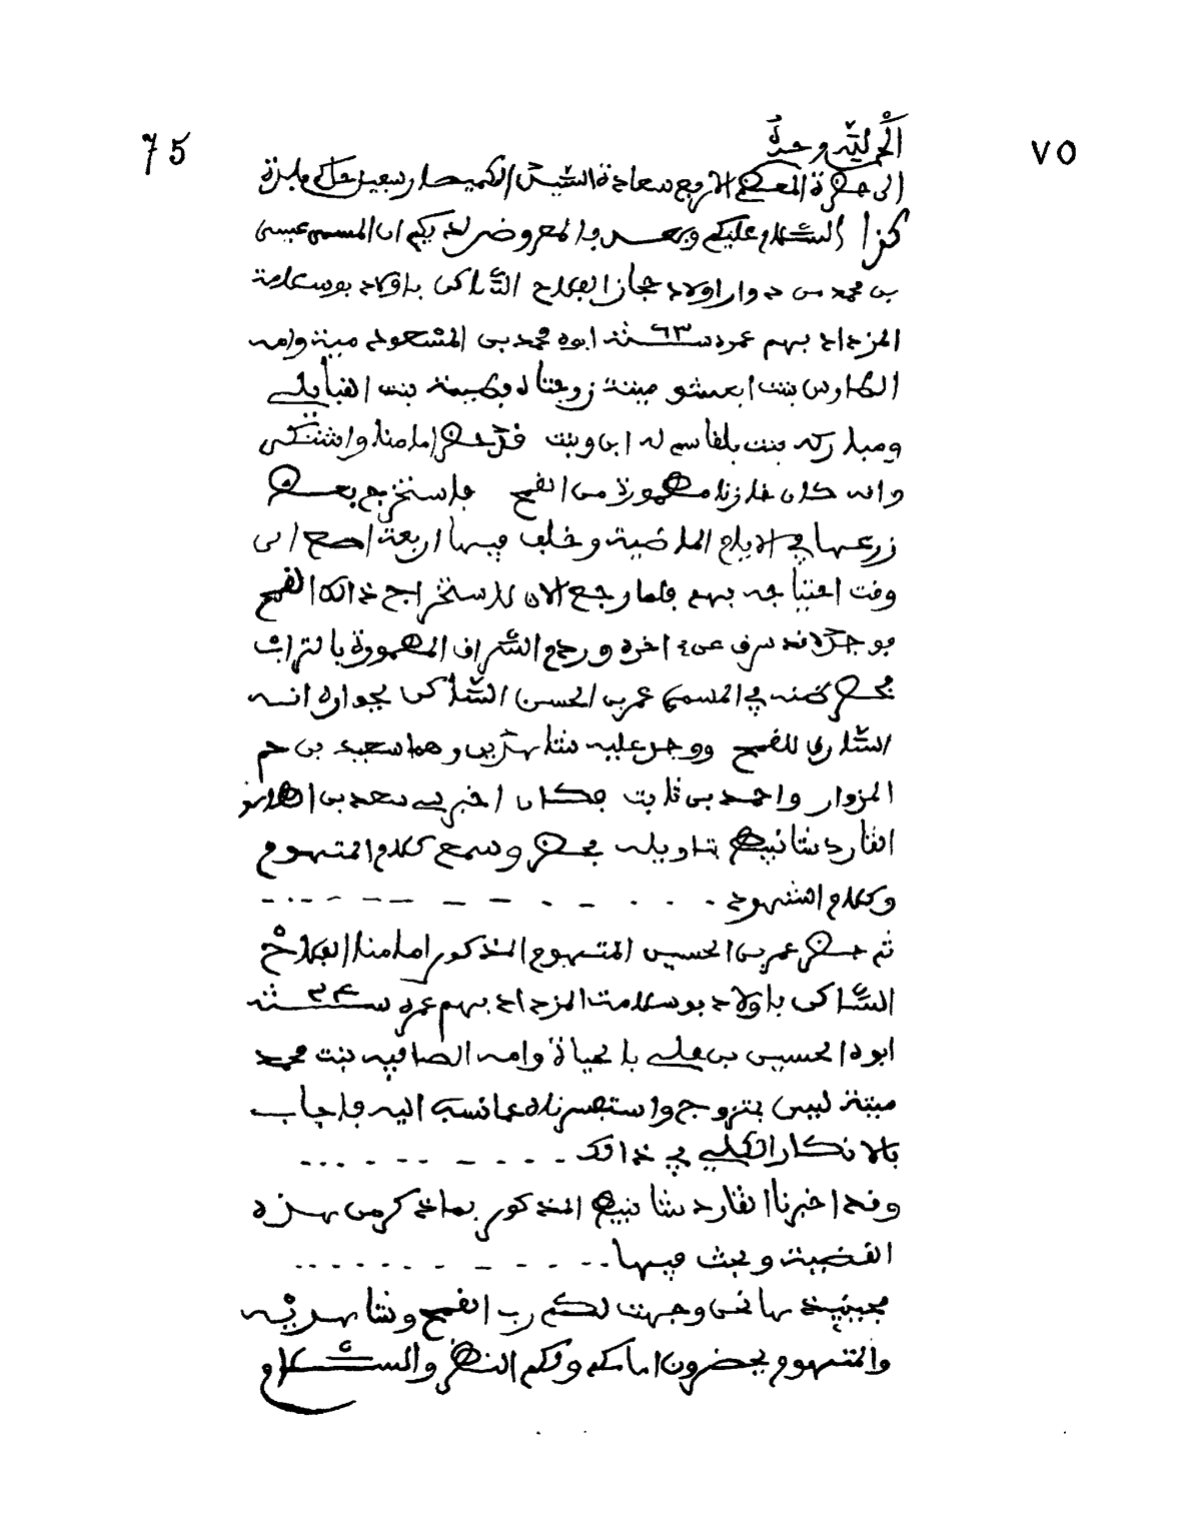 75
٧٥
الحمد لله وحده
الى حضرة المعظم الارفع سعادة السيد الكميصار بلدة
كذا السلام عليكم وبعد فالمعروض لديكم ان المسمى عيسى
بن محمد من دوار اولاد حجاز الفلاح الساكن باولاد بوسلامة
المزداد بهم عمره ٦٣ سنة ابوه محمد بن المسعود ميت وامه
الطاوس بنت ميتة زوجتاه فطيمة بنت القبايلي
ومباركه بنت بلقاسم له ابن وبنت قد حضر امامنا واشتكى
وانه كان خازنا مطمورة من القمح فاستخرج بعض
زرعها في الايام الماضية وخلف فيها اربعة اصع الى
وقت احتياجه بهم فلما رجع الان للاستخراج ذالك القمح
فوجده قد سرق عن اخره ورجع السراق المطمورة بالتراب
في المسمى عمر بن الحسن الساكن بجواره انه
السارق للقمح ووجد عليه شاهدين وهما سعيد بن حم
المزوار واحمد بن ثابت فكان اخبر بي سعد بن
القارد شانبيط بحضر وسمع كلام المتهوم
وكلام الشهود
ثم حضر عمر بن الحسين المتهوم المذكور امامنا الفلاح
الساكن باولاد بوسلامة المزداد بهم عمره ٣٤ سنة
ابوه الحسين بن علي بالحياة وامه الصافيه بنت محمد
ميتة ليس بمتزوج واستفسرناه عما نسب اليه فاجاب
بالانكار الكلي في ذالك
وقد اخبرنا القارد شانبيط المذكور بما ذكر من هذه
القضية وبحث فيها
فحينئذ ها نحن وجهت لكم رب القمح وشاهديه
والمتهوم يحضرون امامكم ولكم النظر والسلام